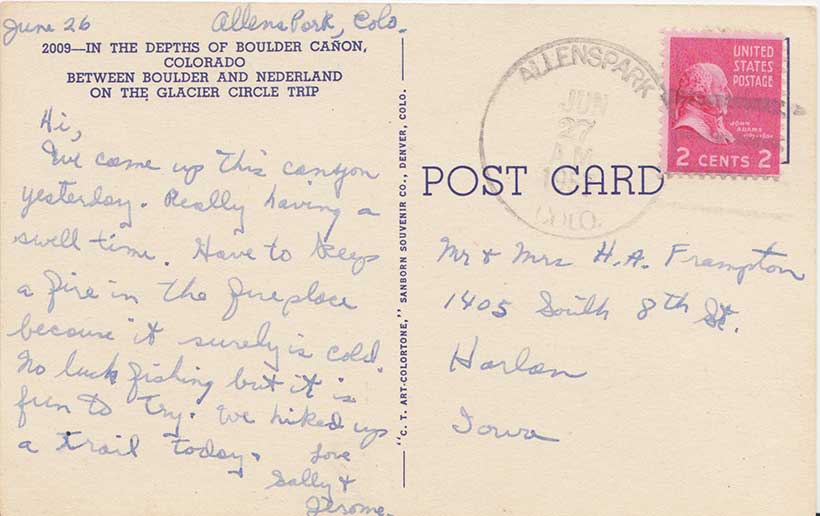 June 26 Allens Park, Colo.
2009—IN THE DEPTHS OF BOULDER CAÑON,
COLORADO
BETWEEN BOULDER AND NEDERLAND
ON THE GLACIER CIRCLE TRIP
Hi,
We came up this canyon
yesterday. Really having a
swell time. Have to keep
a fire in the fireplace
because it surely is cold.
No luck fishing but it is
fun to try. We hiked up
a trail today.
Love
Sally +
Jerome.
"C. T. ART-COLORTONE," SANBORN SOUVENIR CO., DENVER, COLO.
POST CARD
ALLENSPARK
JUN
27
COLO.
UNITED
STATES
POSTAGE
JOHN
ADAMS
2 CENTS 2
Mr + Mrs H.A. Frampton
1405 South 8th St.
Harlan
Iowa